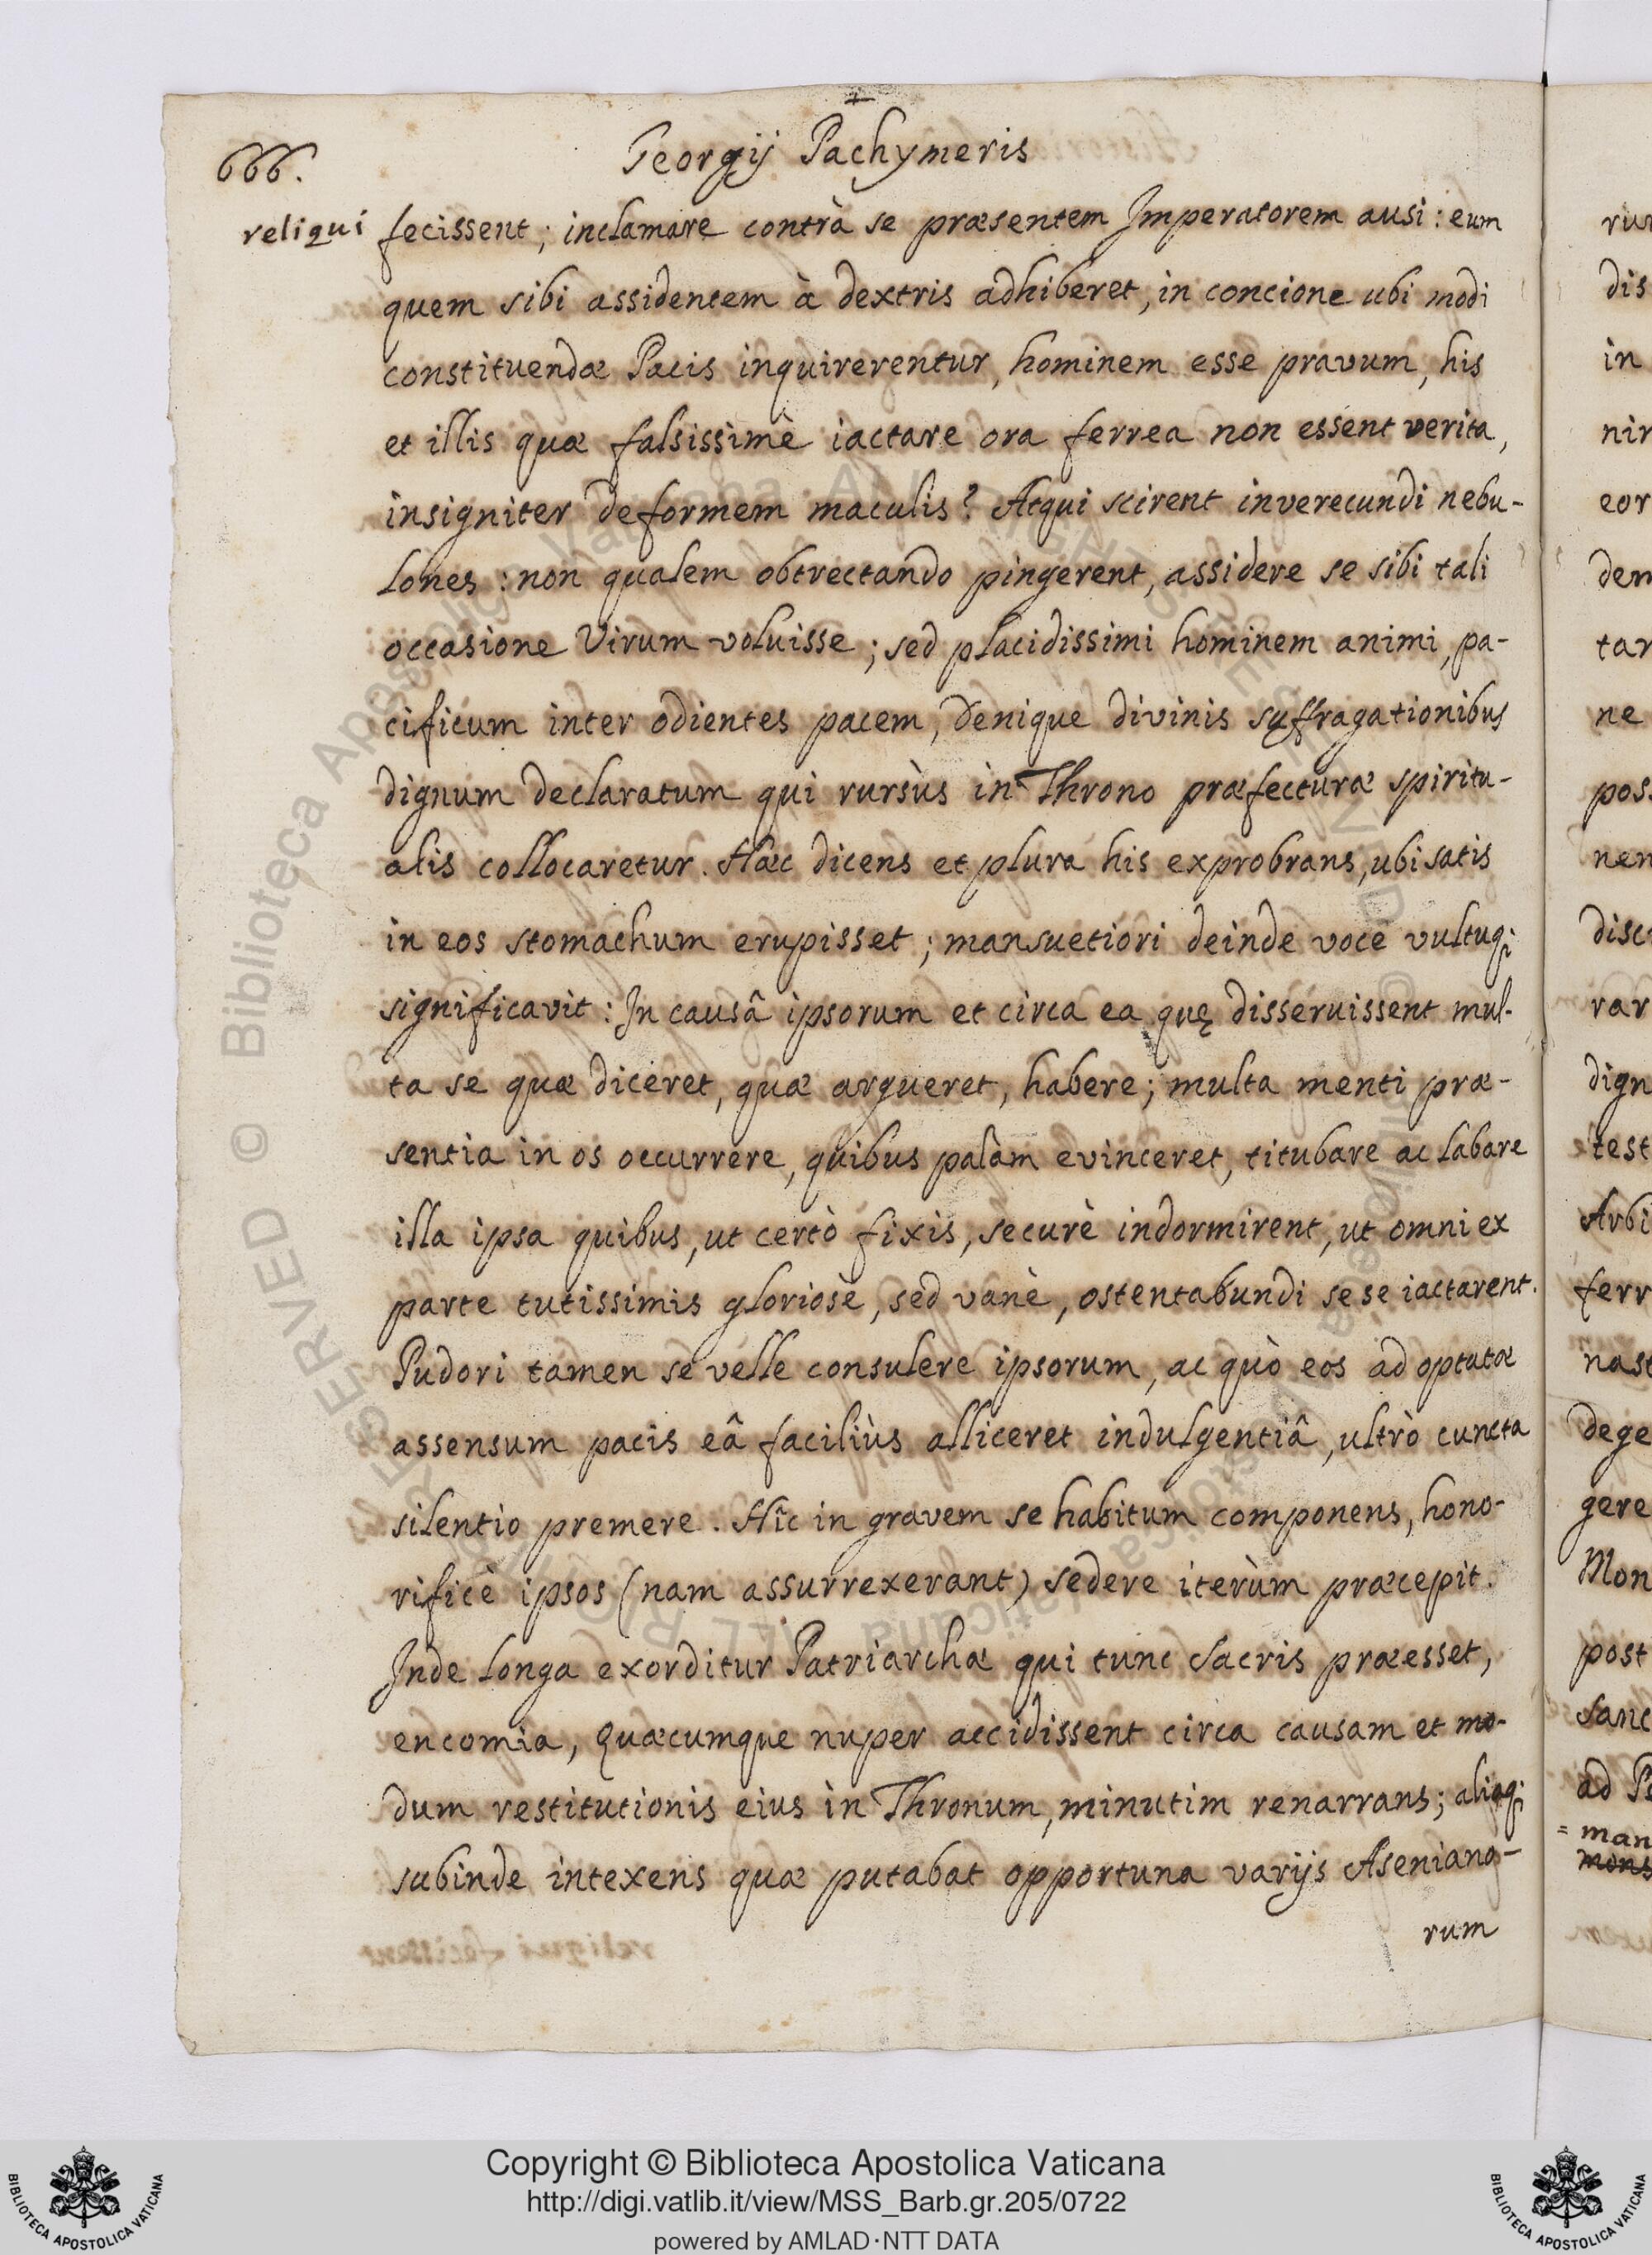 666.
Georgij Pachymeris
reliqui fecissent; inclamare contrà se præsentem Imperatorem ausi: eum
quem sibi assidentem à dextris adhiberet, in concione ubi modi
constituendæ Pacis inquirerentur, hominem esse pravum, his
et illis quæ falsissimè iactare ora ferrea non essent verita,
insigniter deformem maculis? Atqui scirent inverecundi nebu-
lones: non qualem obtrectando pingerent, assidere se sibi tali
occasione Virum voluisse; sed placidissimi hominem animi, pa-
cificum inter odientes pacem, denique divinis suffragationibus
dignum declaratum qui rursùs in Throno præfecturæ spiritu-
alis collocaretur. Hæc dicens et plura his exprobrans, ubi satis
in eos stomachum erupisset; mansuetiori deinde voce vultuq;
significavit: In causâ ipsorum et circa ea quę disseruissent mul-
ta se quæ diceret, quæ argueret, habere; multa menti præ-
sentia in os occurrere, quibus palàm evinceret, titubare ac labare
illa ipsa quibus, ut certò fixis, securè indormirent, ut omni ex
parte tutissimis gloriosè, sed vanè, ostentabundi sese iactarent.
Pudori tamen se velle consulere ipsorum, ac quò eos ad optatæ
assensum pacis eâ faciliùs alliceret indulgentiâ, ultrò cuncta
silentio premere. Hîc in gravem se habitum componens, hono-
rificè ipsos (nam assurrexerant) sedere iterùm præcepit.
Inde longa exorditur Patriarchæ qui tunc sacris præesset,
encomia, quæcumque nuper accidissent circa causam et mo-
dum restitutionis eius in Thronum, minutim renarrans; aliaq;
subinde intexens quæ putabat opportuna varijs Aseniano-
rum
rur
dis
in
nir
eor
den
tar
ne
pos
nen
disc
rar
dign
test
Arbi
ferr
nast
dege
gere
Mon
post
sanc
ad Ps
= man
mons
© Biblioteca Apostolica Vaticana ALL RIGHTS RESERVED
Copyright © Biblioteca Apostolica Vaticana
http://digi.vatlib.it/view/MSS_Barb.gr.205/0722
powered by AMLAD·NTT DATA
BIBLIOTECA APOSTOLICA VATICANA
BIBLIOTECA APOSTOLICA VATICANA